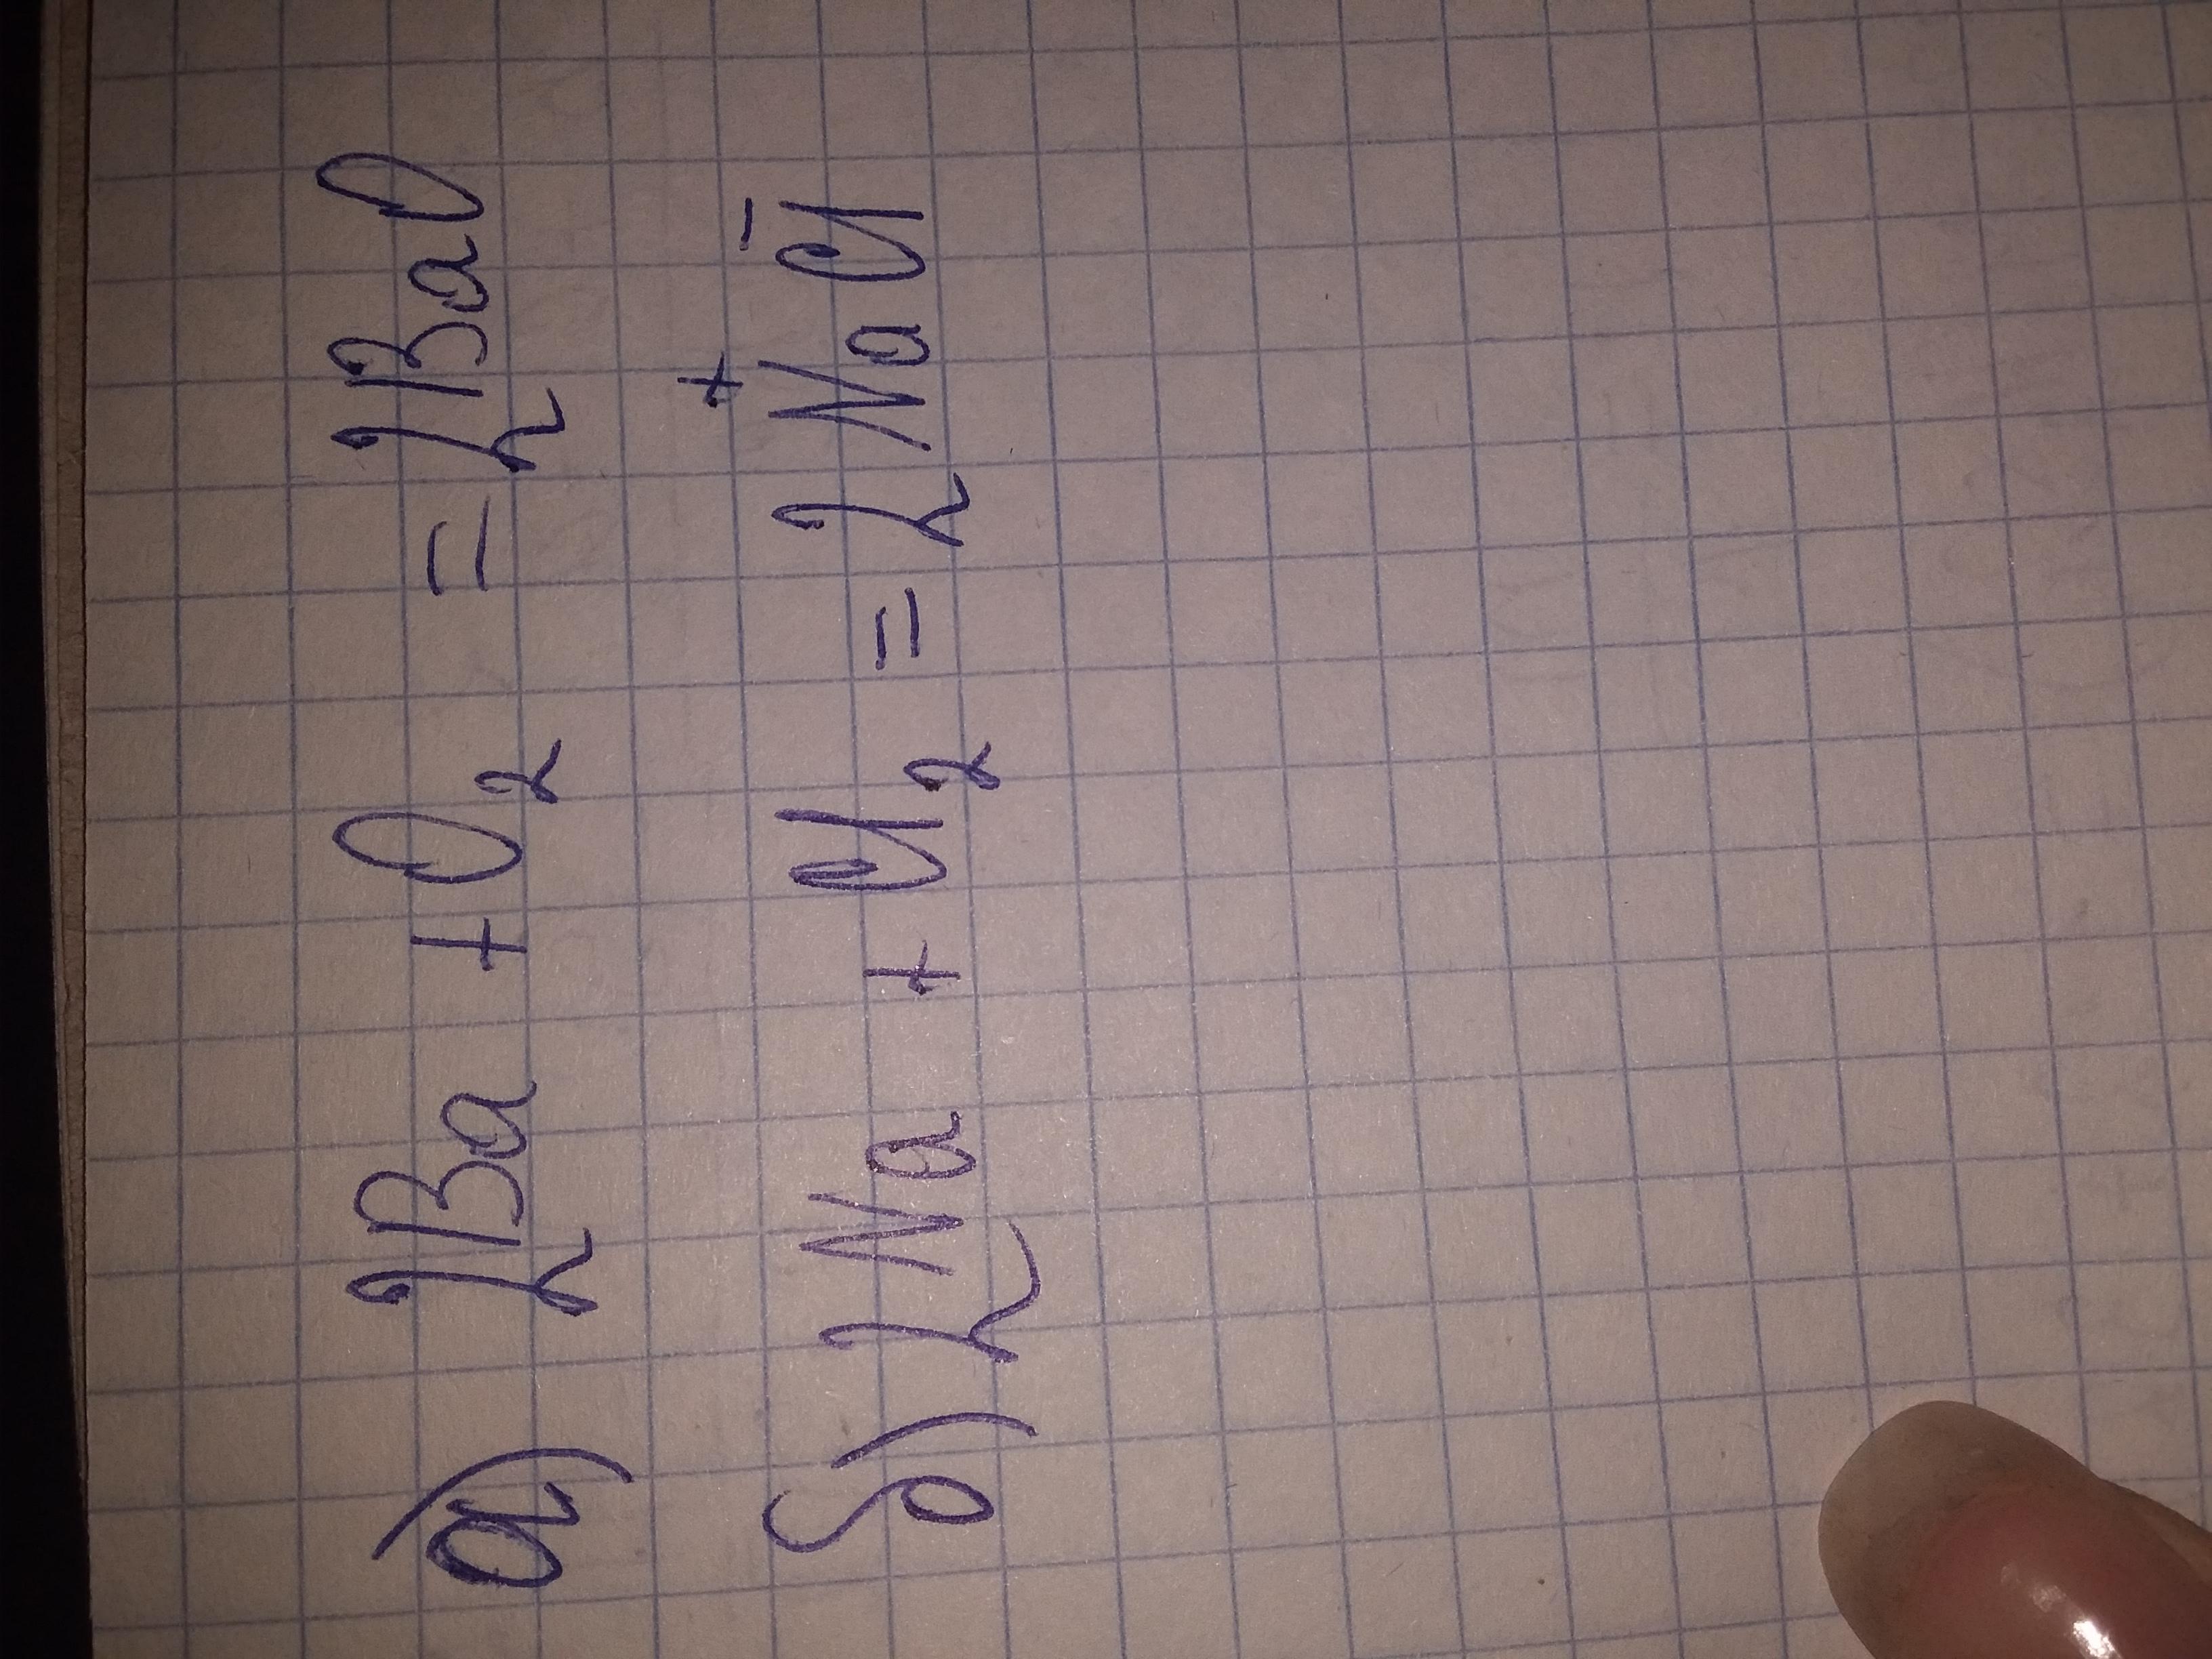 а) 2Ba + O₂ = 2BaO
б) 2Na + Cl₂ = 2Na⁺Cl⁻